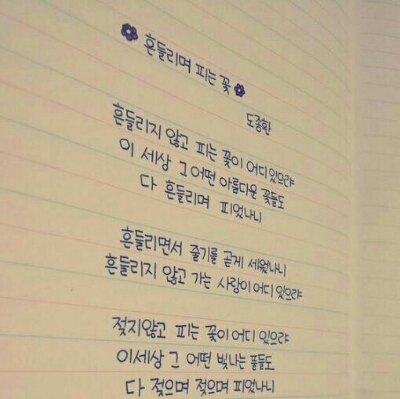 흔들리며 피는 꽃
도종환
흔들리지 않고 피는 꽃이 어디 있으랴
이 세상 그 어떤 아름다운 꽃들도
다 흔들리며 피었나니
흔들리면서 줄기를 곧게 세웠나니
흔들리지 않고 가는 사랑이 어디 있으랴
젖지 않고 피는 꽃이 어디 있으랴
이세상 그 어떤 빛나는 꽃들도
다 젖으며 젖으며 피었나니